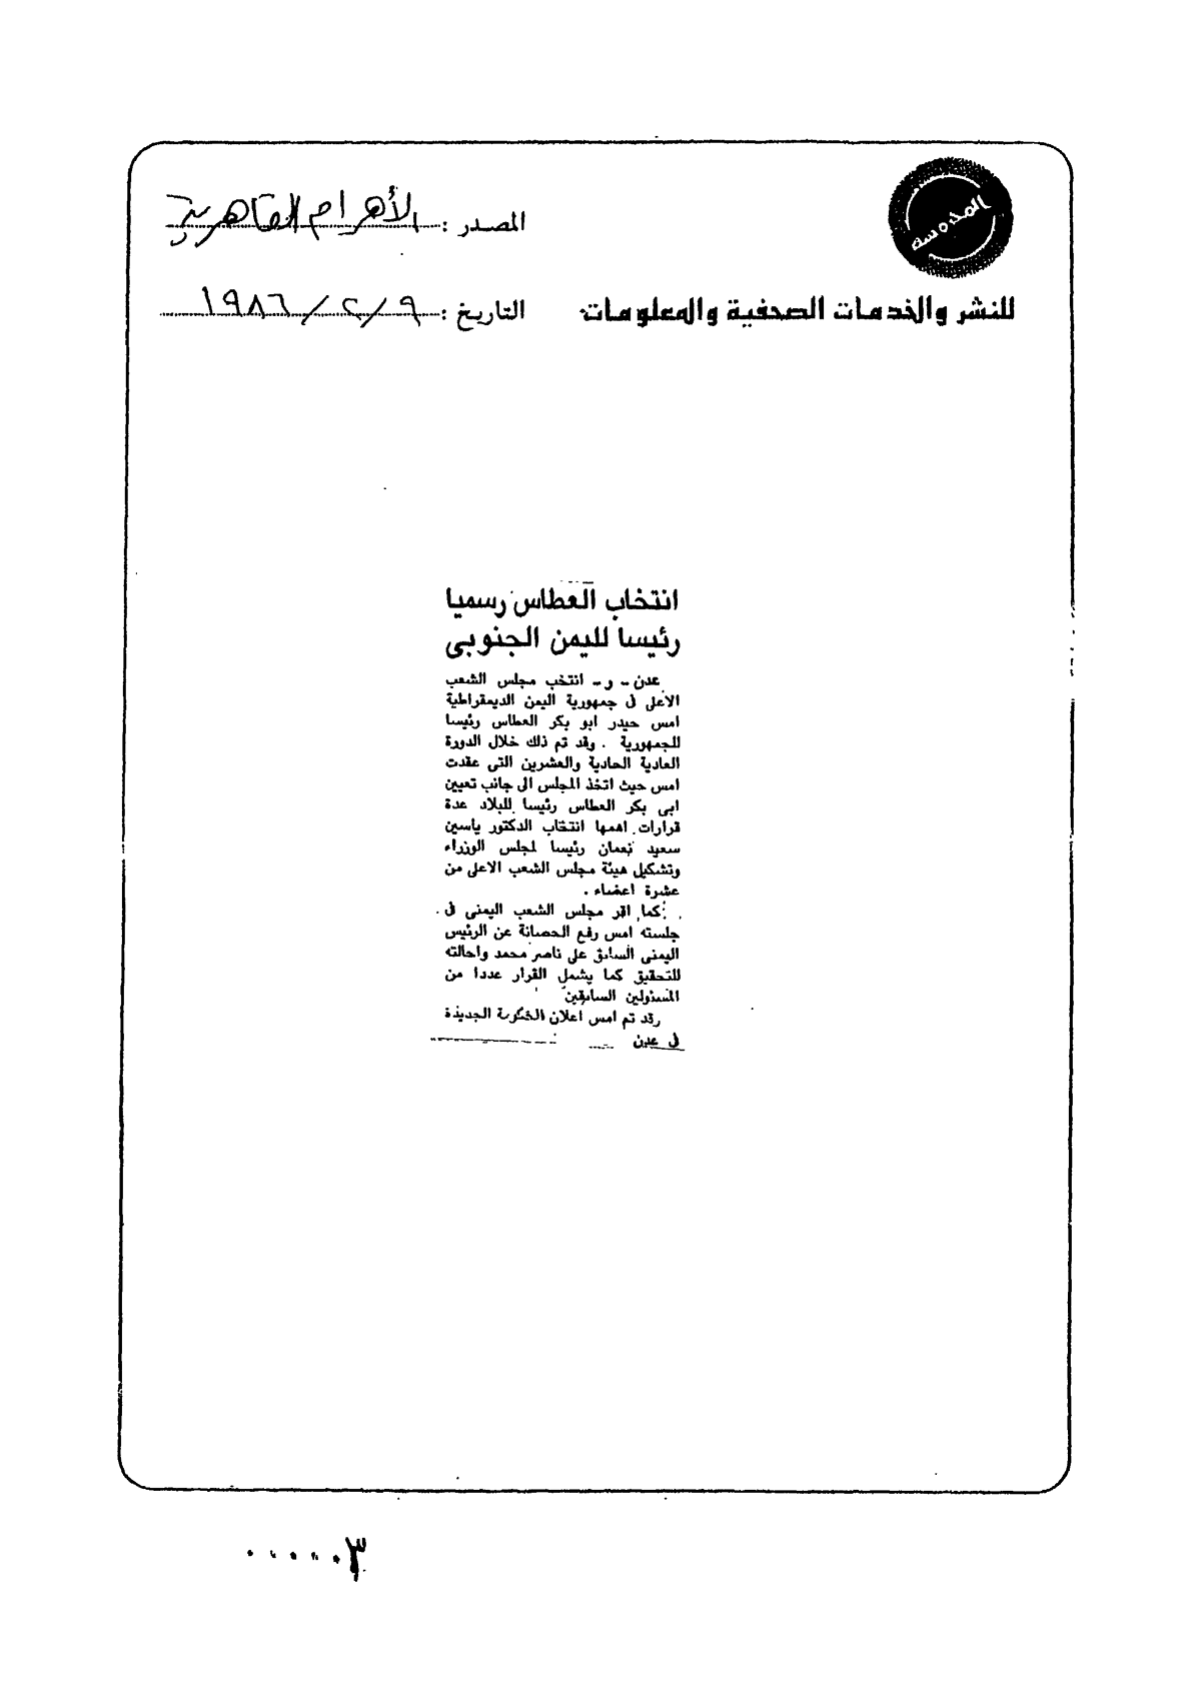 المحروسة
للنشر والخدمات الصحفية والمعلومات
المصدر : الأهرام القاهرية
التاريخ : ٩ / ٢ / ١٩٨٦
انتخاب العطاس رسميا
رئيسا لليمن الجنوبى
عدن - و - انتخب مجلس الشعب
الاعلى فى جمهورية اليمن الديمقراطية
امس حيدر ابو بكر العطاس رئيسا
للجمهورية . وقد تم ذلك خلال الدورة
العادية الحادية والعشرين التى عقدت
امس حيث اتخذ المجلس الى جانب تعيين
ابى بكر العطاس رئيسا للبلاد عدة
قرارات اهمها انتخاب الدكتور ياسين
سعيد نعمان رئيسا لمجلس الوزراء
وتشكيل هيئة مجلس الشعب الاعلى من
عشرة اعضاء .
كما اقر مجلس الشعب اليمنى فى
جلسته امس رفع الحصانة عن الرئيس
اليمنى السابق على ناصر محمد واحالته
للتحقيق كما يشمل القرار عددا من
المسئولين السابقين
وقد تم امس اعلان الحكومة الجديدة
فى عدن
٠٠٠٠٠٣